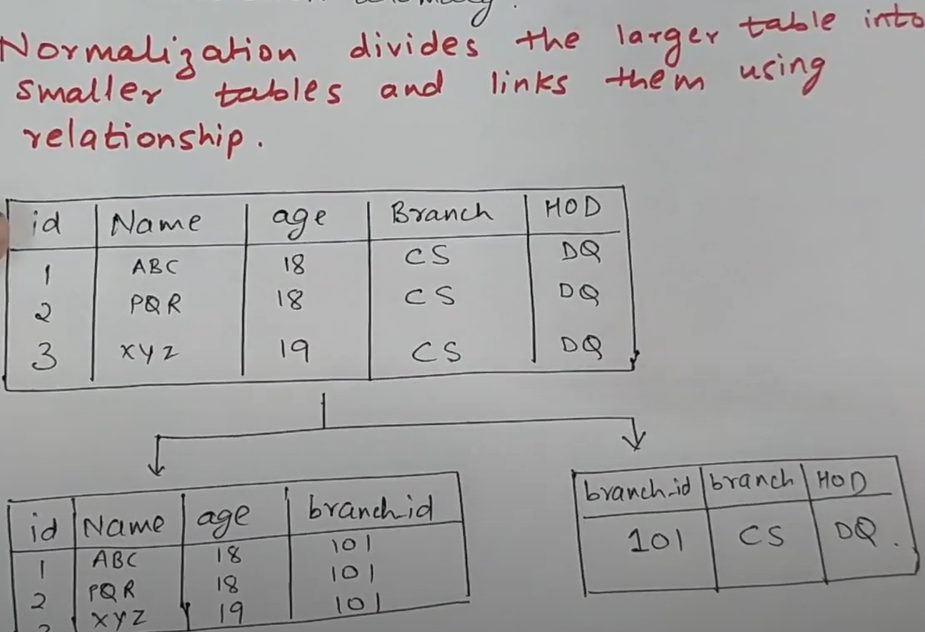 Normalization divides the larger table into
smaller tables and links them using
relationship.
id Name age Branch HOD
1 ABC 18 CS DQ
2 PQR 18 CS DQ
3 XYZ 19 CS DQ
id Name age branch_id
1 ABC 18 101
2 PQR 18 101
XYZ 19 101
branch_id branch HOD
101 CS DQ.